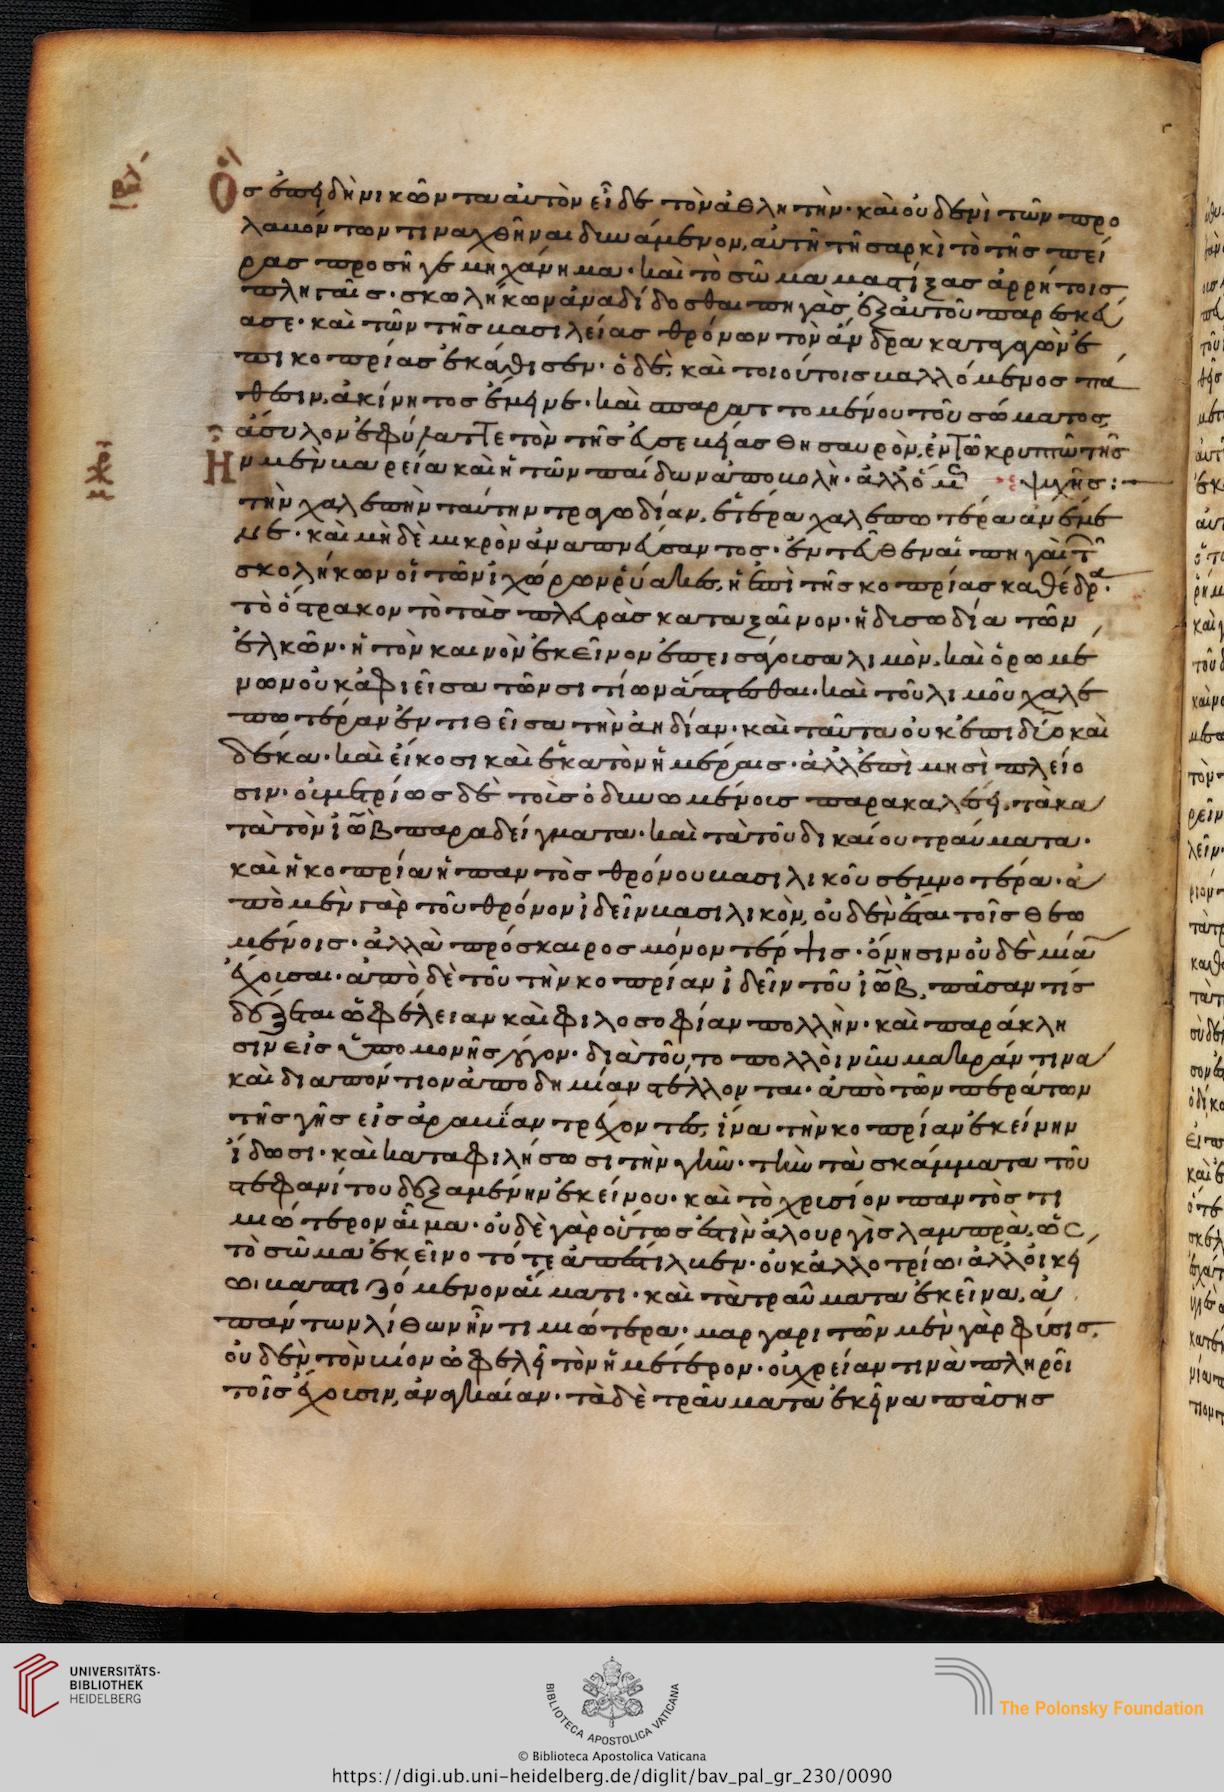 Ὃς ἐπεὶ δὴ νικῶντα αὐτὸν εἶδε τὸν ἀθλητὴν· καὶ οὐδενὶ τῶν προ
λαβόντων τιναχθῆναι δυνάμενον, αὐτῆ τῆ σαρκὶ τὸ τῆς πεί
ρας προσῆγε μηχάνημα· καὶ τὸ σῶμα μαστίξας ἀρρήτοις
πληγαῖς· σκωλήκων ἀναδίδοσθαι πηγὰς ἐξ αὐτοῦ παρεσκεύ
ασε· καὶ τῶν τῆς βασιλείας θρόνων τὸν ἄνδρα καταγαγὼν ἐ
πὶ κοπρίας ἐκάθισεν· ὁ δὲ, καὶ τοιούτοις βαλλόμενος πά
θεσιν, ἀκίνητος ἔμεινε· καὶ σπαραττομένου τοῦ σώματος,
ἄσυλον ἐφύλαττε τὸν τῆς εὐσεβείας θησαυρὸν, ἐν τῶ κρυπτῶ τῆς
Ἦν μὲν βαρεία καὶ ἡ τῶν παίδων ἀποβολὴ· ἀλλ' ὅμως ψυχῆς:
τὴν χαλεπὴν ταύτην τραγωδίαν, ἑτέρα χαλεπωτέρα ἀνέμε
νε· καὶ μὴ δὲ μικρὸν ἀναπνεύσαντος· ἐντεῦθεν αἱ πηγαὶ τῶν
σκολήκων οἱ τῶν ἰχώρων ῥύακες, ἡ ἐπὶ τῆς κοπρίας καθέδρα·
τὸ ὄστρακον τὸ τὰς πλευρὰς καταξαῖνον· ἡ δισωδία τῶν
ἑλκῶν· ἡ τὸν καινὸν ἐκεῖνον ἐπεισάγουσα λιμὸν, καὶ ὁρωμέ
νων οὐκ ἀφιεῖσα τῶν σιτίων ἅπτεσθαι· καὶ τοῦ λιμοῦ χαλε
πωτέραν ἐντιθεῖσα τὴν ἀηδίαν· καὶ ταῦτα οὐκ ἐπὶ δύο καὶ
δέκα· καὶ εἴκοσι καὶ ἑκατὸν ἡμέραις· ἀλλ' ἐπὶ μησὶ πλείο
σιν· οὐ μετρίως δὲ τοῖς ὀδυνωμένοις παρακαλέσει, τὰ κα
τὰ τὸν ἰὼβ παραδείγματα· καὶ τὰ τοῦ δικαίου τραύματα·
καὶ ἡ κοπρία ἡ παντὸς θρόνου βασιλικοῦ σεμνοτέρα· ἀ
πὸ μὲν γὰρ τοῦ θρόνον ἰδεῖν βασιλικὸν, οὐδὲν ἔσται τοῖς θεω
μένοις· ἀλλὰ πρόσκαιρος μόνον τέρψις· ὄνησιν οὐδὲ μίαν
ἔχουσαι· ἀπὸ δὲ τοῦ τὴν κοπρίαν ἰδεῖν τοῦ ἰὼβ, πᾶσαν τίς
δέξεται ὠφέλειαν καὶ φιλοσοφίαν πολλὴν· καὶ παράκλη
σιν εἰς ὑπομονῆς λόγον· διὰ τοῦτο πολλοὶ νῦν μακράν τινα
καὶ διαπόντιον ἀποδημίαν στέλλονται· ἀπὸ τῶν περάτων
τῆς γῆς εἰς ἀραβΐαν τρέχοντες, ἵνα τὴν κοπρίαν ἐκείνην
ἴδωσι· καὶ καταφιλήσωσι τὴν γῆν· τὴν τὰ σκάμματα τοῦ
στεφανίτου δεξαμένην ἐκείνου· καὶ τὸ χρυσίον παντὸς τι
μιώτερον αἷμα· οὐδὲ γὰρ οὕτως ἐστὶν ἁλουργὶς λαμπρὰ, ὡς
τὸ σῶμα ἐκεῖνο τό τε ἀπέστιλβεν· οὐκ ἀλλοτρίω· ἀλλ' οἰκεί
ω· βαπτιζόμενον αἵματι· καὶ τὰ τραύματα ἐκεῖνα, ἁ
πάντων λίθων ἦν τιμιώτερα· μαργαριτῶν μὲν γὰρ φύσις,
οὐδὲν τὸν βίον ὠφελεῖ τὸν ἡμέτερον· οὐ χρείαν τινὰ πληροῖ
τοῖς ἔχουσιν, ἀναγκαίαν· τὰ δὲ τραύματα ἐκεῖνα πάσης
UNIVERSITÄTS-
BIBLIOTHEK
HEIDELBERG
BIBLIOTECA APOSTOLICA VATICANA
The Polonsky Foundation
© Biblioteca Apostolica Vaticana
https://digi.ub.uni-heidelberg.de/diglit/bav_pal_gr_230/0090